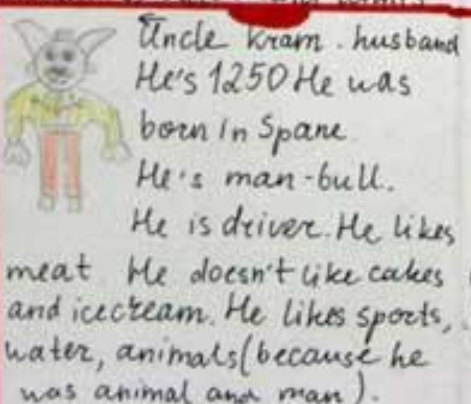 Uncle Kram. husband
He's 1250 He was
born in Spane
He's man-bull.
He is driver. He likes
meat He doesn't like cakes
and icecream. He likes sports,
water, animals (because he
was animal and man).